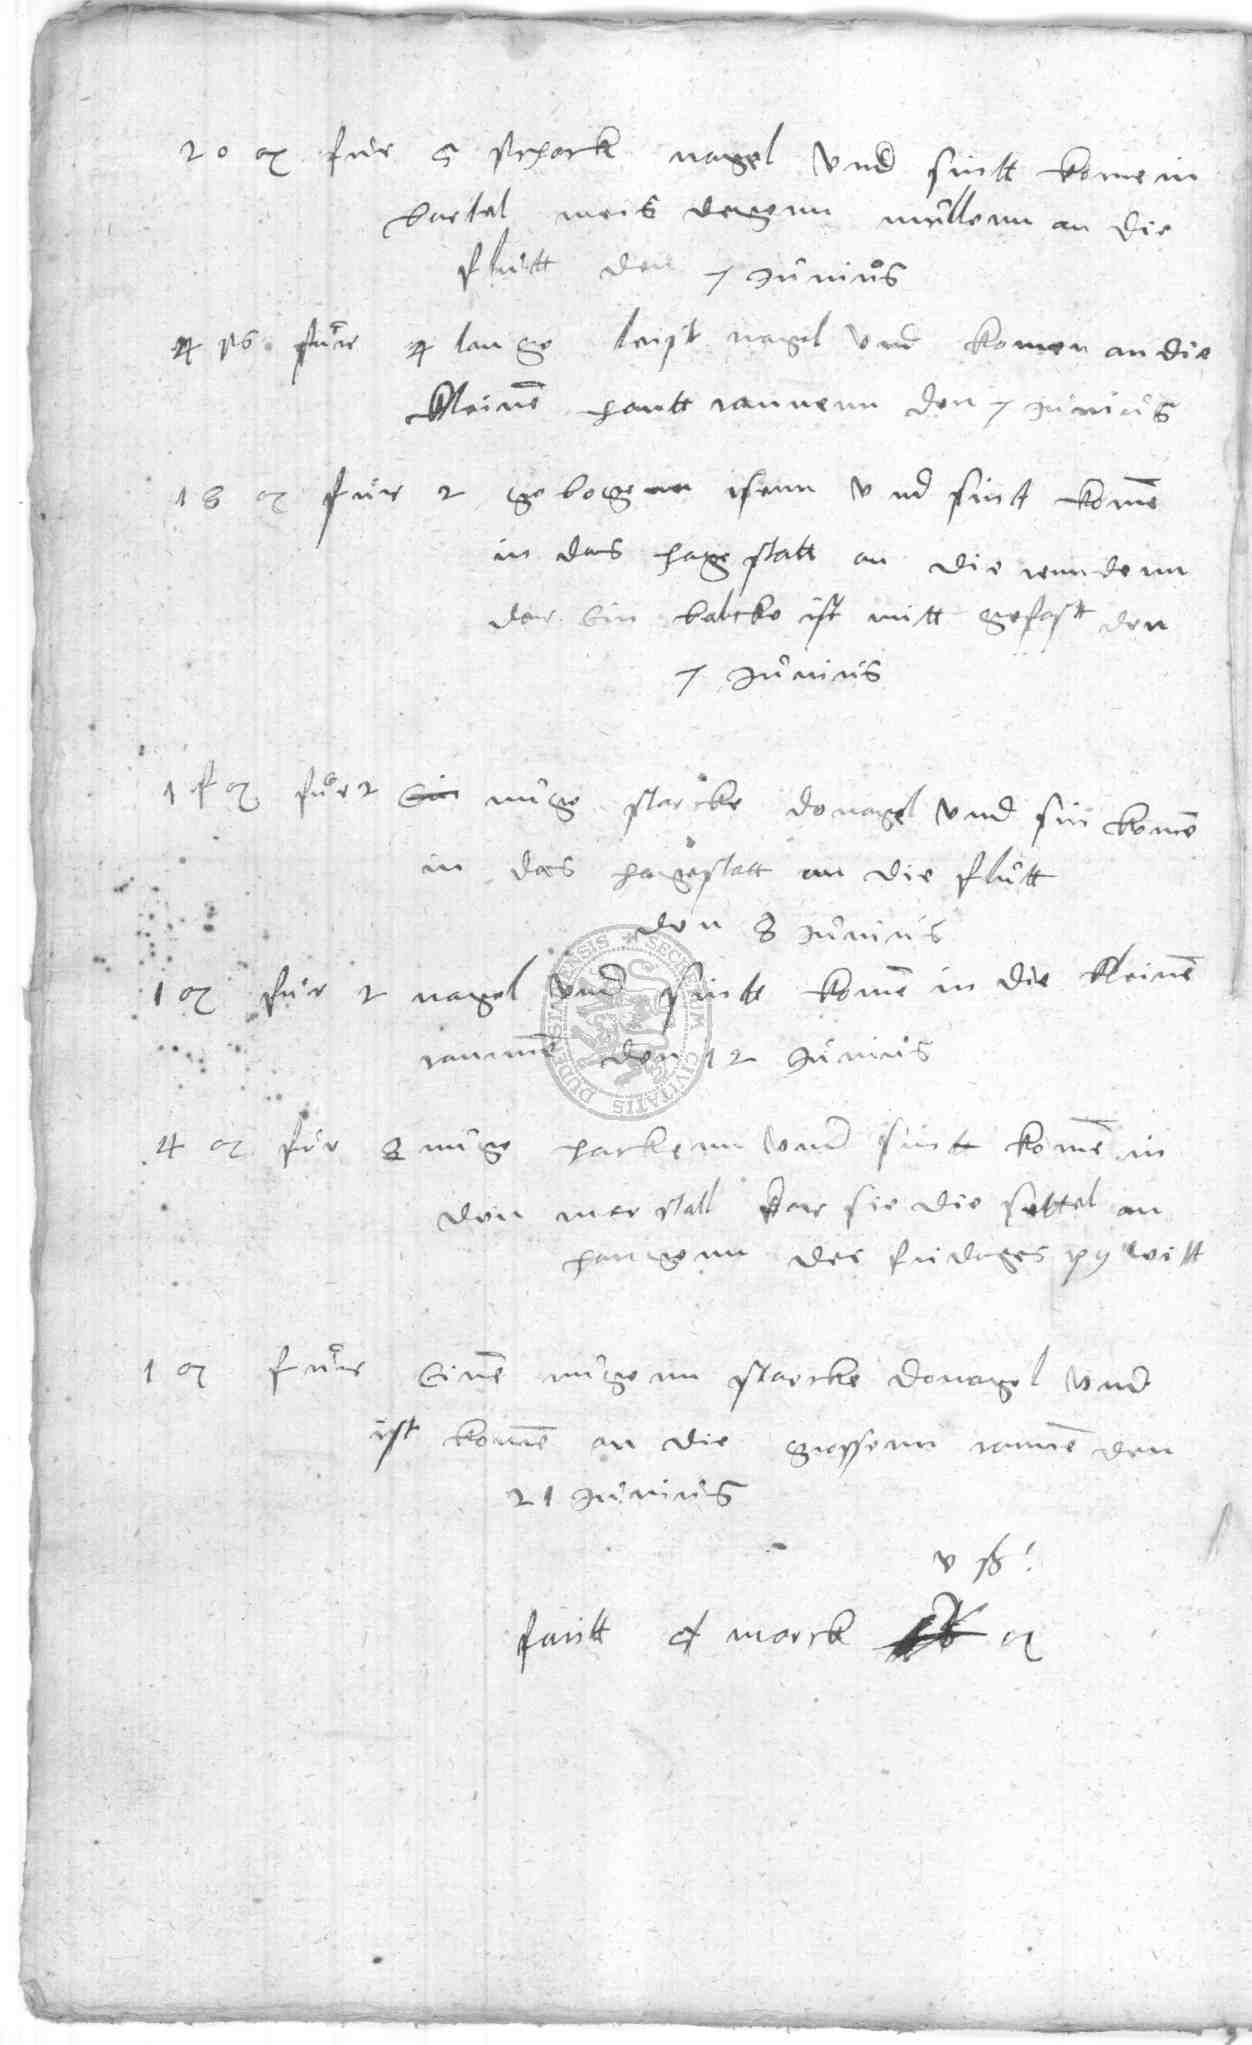 20 ₰ fur 5 schock nagel vnd sintt komen in
bartel meis degenn mullenn an die
flutt den 7 Junius
4 ß fur 4 lange leist nagel vnd komen an die
kleinē hantt rannenn den 7 Junius
18 ₰ fur 2 gebogenn isenn vnd sintt komē
in das hagestatt an die wendenn
dar ein balcke ist mitt gefast den
7 Junius
fur 2 ein nuge starcke donagel vnd sin komē
in das hagestatt an die flutt
den 8 Junius
1 ₰ fur 2 nagel vnd sintt komē in die kleinē
rannē den 12 Junius
4 ₰ fur 8 nuge hackenn vnd sintt komē in
den marstall dar sie die settel an
hangenn des fridages vitt
1 ₰ fur einē nugenn starcke donagel vnd
ist komē an die grossenn rannē den
21 Junius
v ß
marck ₰
SECRETUM CIVITATIS DUDERSTATENSIS